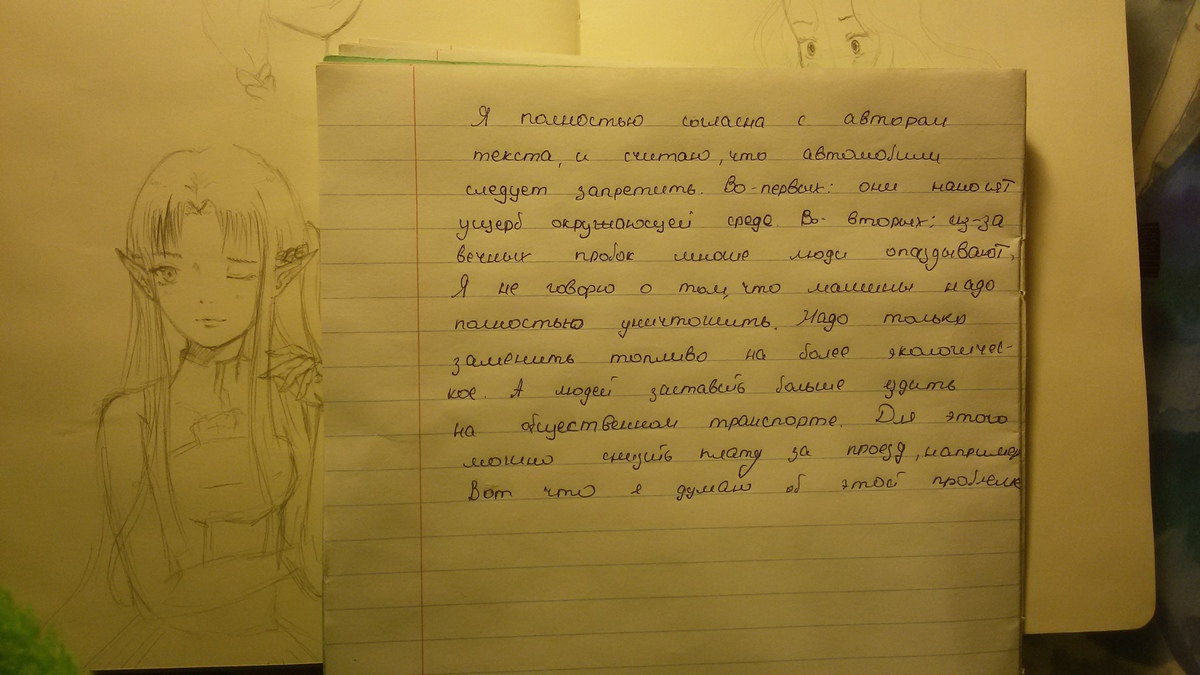 Я полностью согласна с автором
текста, и считаю, что автомобили
следует запретить. Во-первых: они наносят
ущерб окружающей среде. Во- вторых: из-за
вечных пробок многие люди опаздывают,
Я не говорю о том, что машины надо
полностью уничтожить. Надо только
заменить топливо на более экологичес-
кое. А людей заставить больше ездить
на общественном транспорте. Для этого
можно снизить плату за проезд, например
Вот что я думаю об этой проблеме